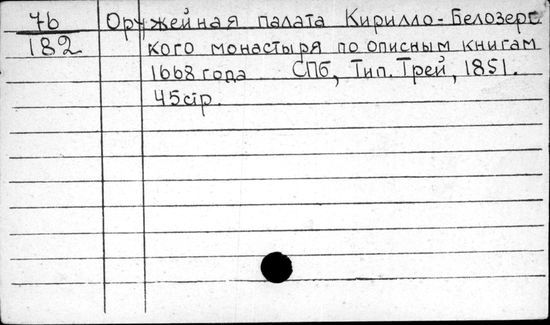 76 Оружейная палата Кирилло-Белозерс
182 кого монастыря по описным книгам
1668 года СПб, Тип. Трей, 1851.
45 стр.